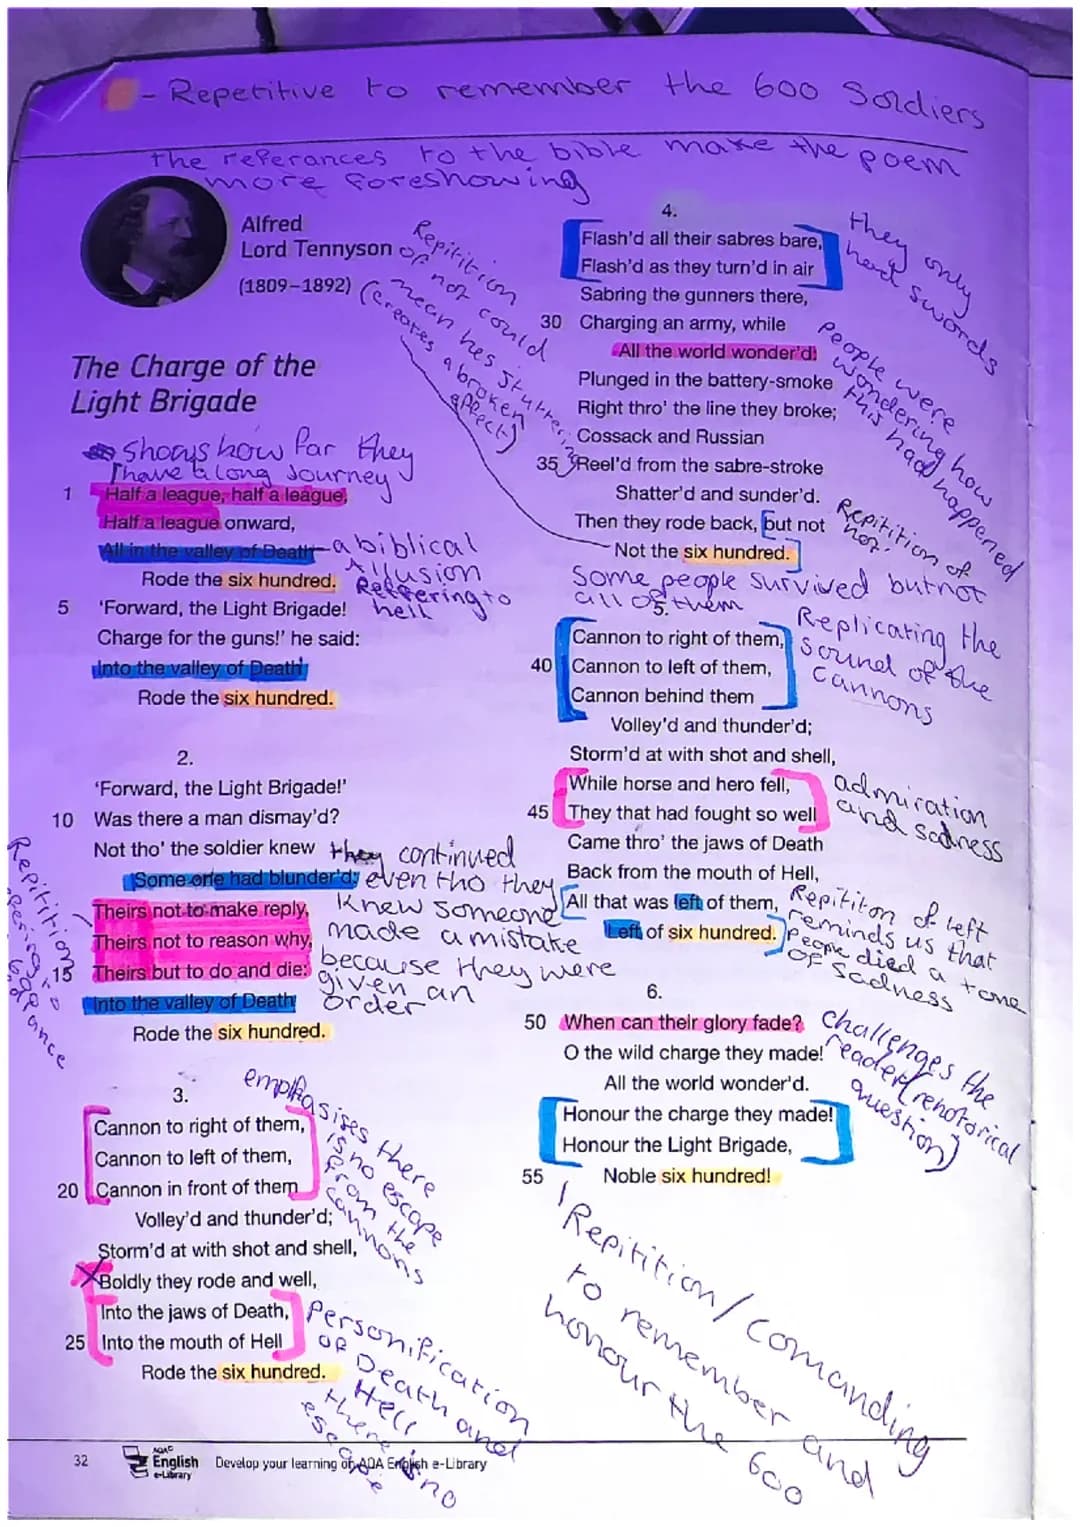 - Repetitive to remember the 600 Soldiers
The referances to the bible make the poem
more foreshowing
Alfred
Lord Tennyson
(1809–1892)
Repitition
of not could
mean hes stuttering
(creates a broken
affect)
The Charge of the
Light Brigade
Shows how far they
have a long Journey
1 Half a league, half a league,
Half a league onward,
All in the valley of Death
Rode the six hundred.
a biblical
Allusion
Refering to
hell
5 'Forward, the Light Brigade!
Charge for the guns!' he said:
Into the valley of Death
Rode the six hundred.
2.
'Forward, the Light Brigade!'
10 Was there a man dismay'd?
Not tho' the soldier knew
Some one had blunder'd:
Theirs not to make reply,
Theirs not to reason why,
15 Theirs but to do and die:
Into the valley of Death
Rode the six hundred.
they continued
even tho they
knew someone
made a mistake
because they were
given an
order
Repitition
3.
Cannon to right of them,
Cannon to left of them,
20 Cannon in front of them
Volley'd and thunder'd;
Storm'd at with shot and shell,
Boldly they rode and well,
Into the jaws of Death,
25 Into the mouth of Hell
Rode the six hundred.
emphasises there
is no escape
from the
cannons
Personification
of Death and
Hell
there is no
escape
4.
Flash'd all their sabres bare,
Flash'd as they turn'd in air
Sabring the gunners there,
30 Charging an army, while
All the world wonder'd:
Plunged in the battery-smoke
Right thro' the line they broke;
Cossack and Russian
35 Reel'd from the sabre-stroke
Shatter'd and sunder'd.
Then they rode back, but not
Not the six hundred.
they only
had swords
People were
wondering how
this had happened
Repitition of
not.
Some people survived but not
all of them
5.
Cannon to right of them,
40 Cannon to left of them,
Cannon behind them
Volley'd and thunder'd;
Storm'd at with shot and shell,
While horse and hero fell,
45 They that had fought so well
Came thro' the jaws of Death
Back from the mouth of Hell,
All that was left of them,
Left of six hundred.
Replicating the
sound of the
cannons
admiration
and sadness
Repititon of left
reminds us that
people died a tone
of sadness
6.
50 When can their glory fade?
O the wild charge they made!
All the world wonder'd.
Honour the charge they made!
Honour the Light Brigade,
55 Noble six hundred!
challenges the
reader (rehotorical
question)
Repitition/comanding
to remember and
honour the 600
32
AQA
English
e-Library
Develop your learning on AQA English e-Library